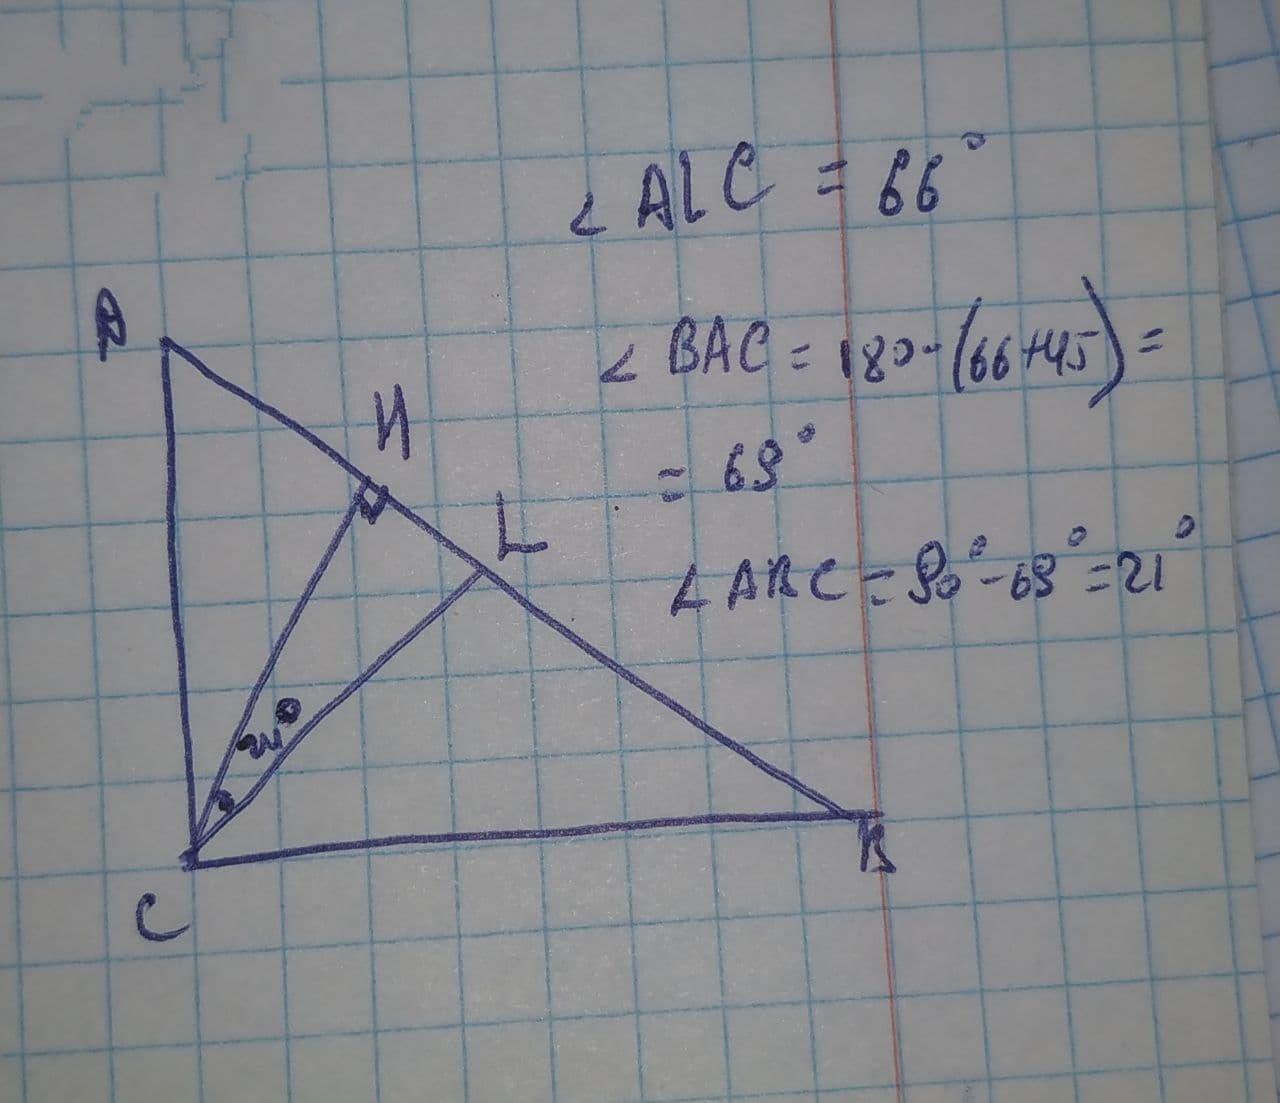 ∠ALC = 66°
∠BAC = 180-(66+45) =
= 69°
∠ABC = 90°-69° = 21°
A
H
L
C
B